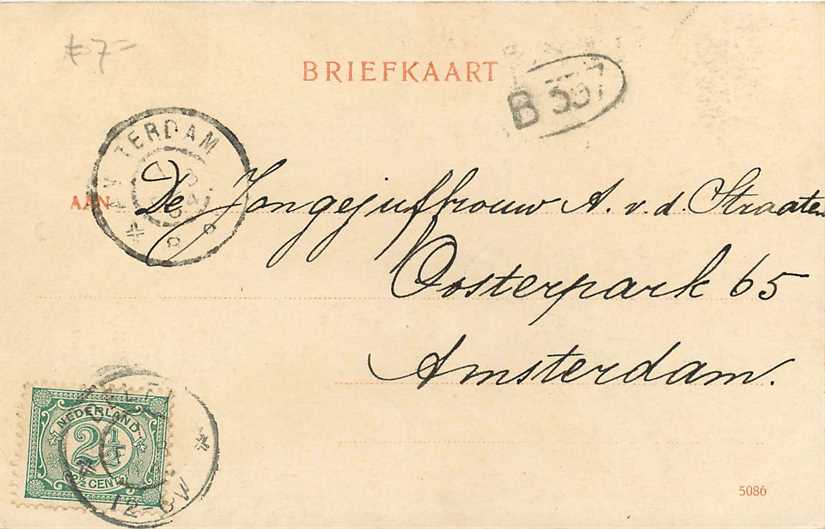 ƒ 7=
BRIEFKAART
B 337
TERDAM
AAN De Jongejuffrouw A. v. d. Straaten
Oosterpark 65
Amsterdam.
NEDERLAND
2½
2½ CENT
12-
5086